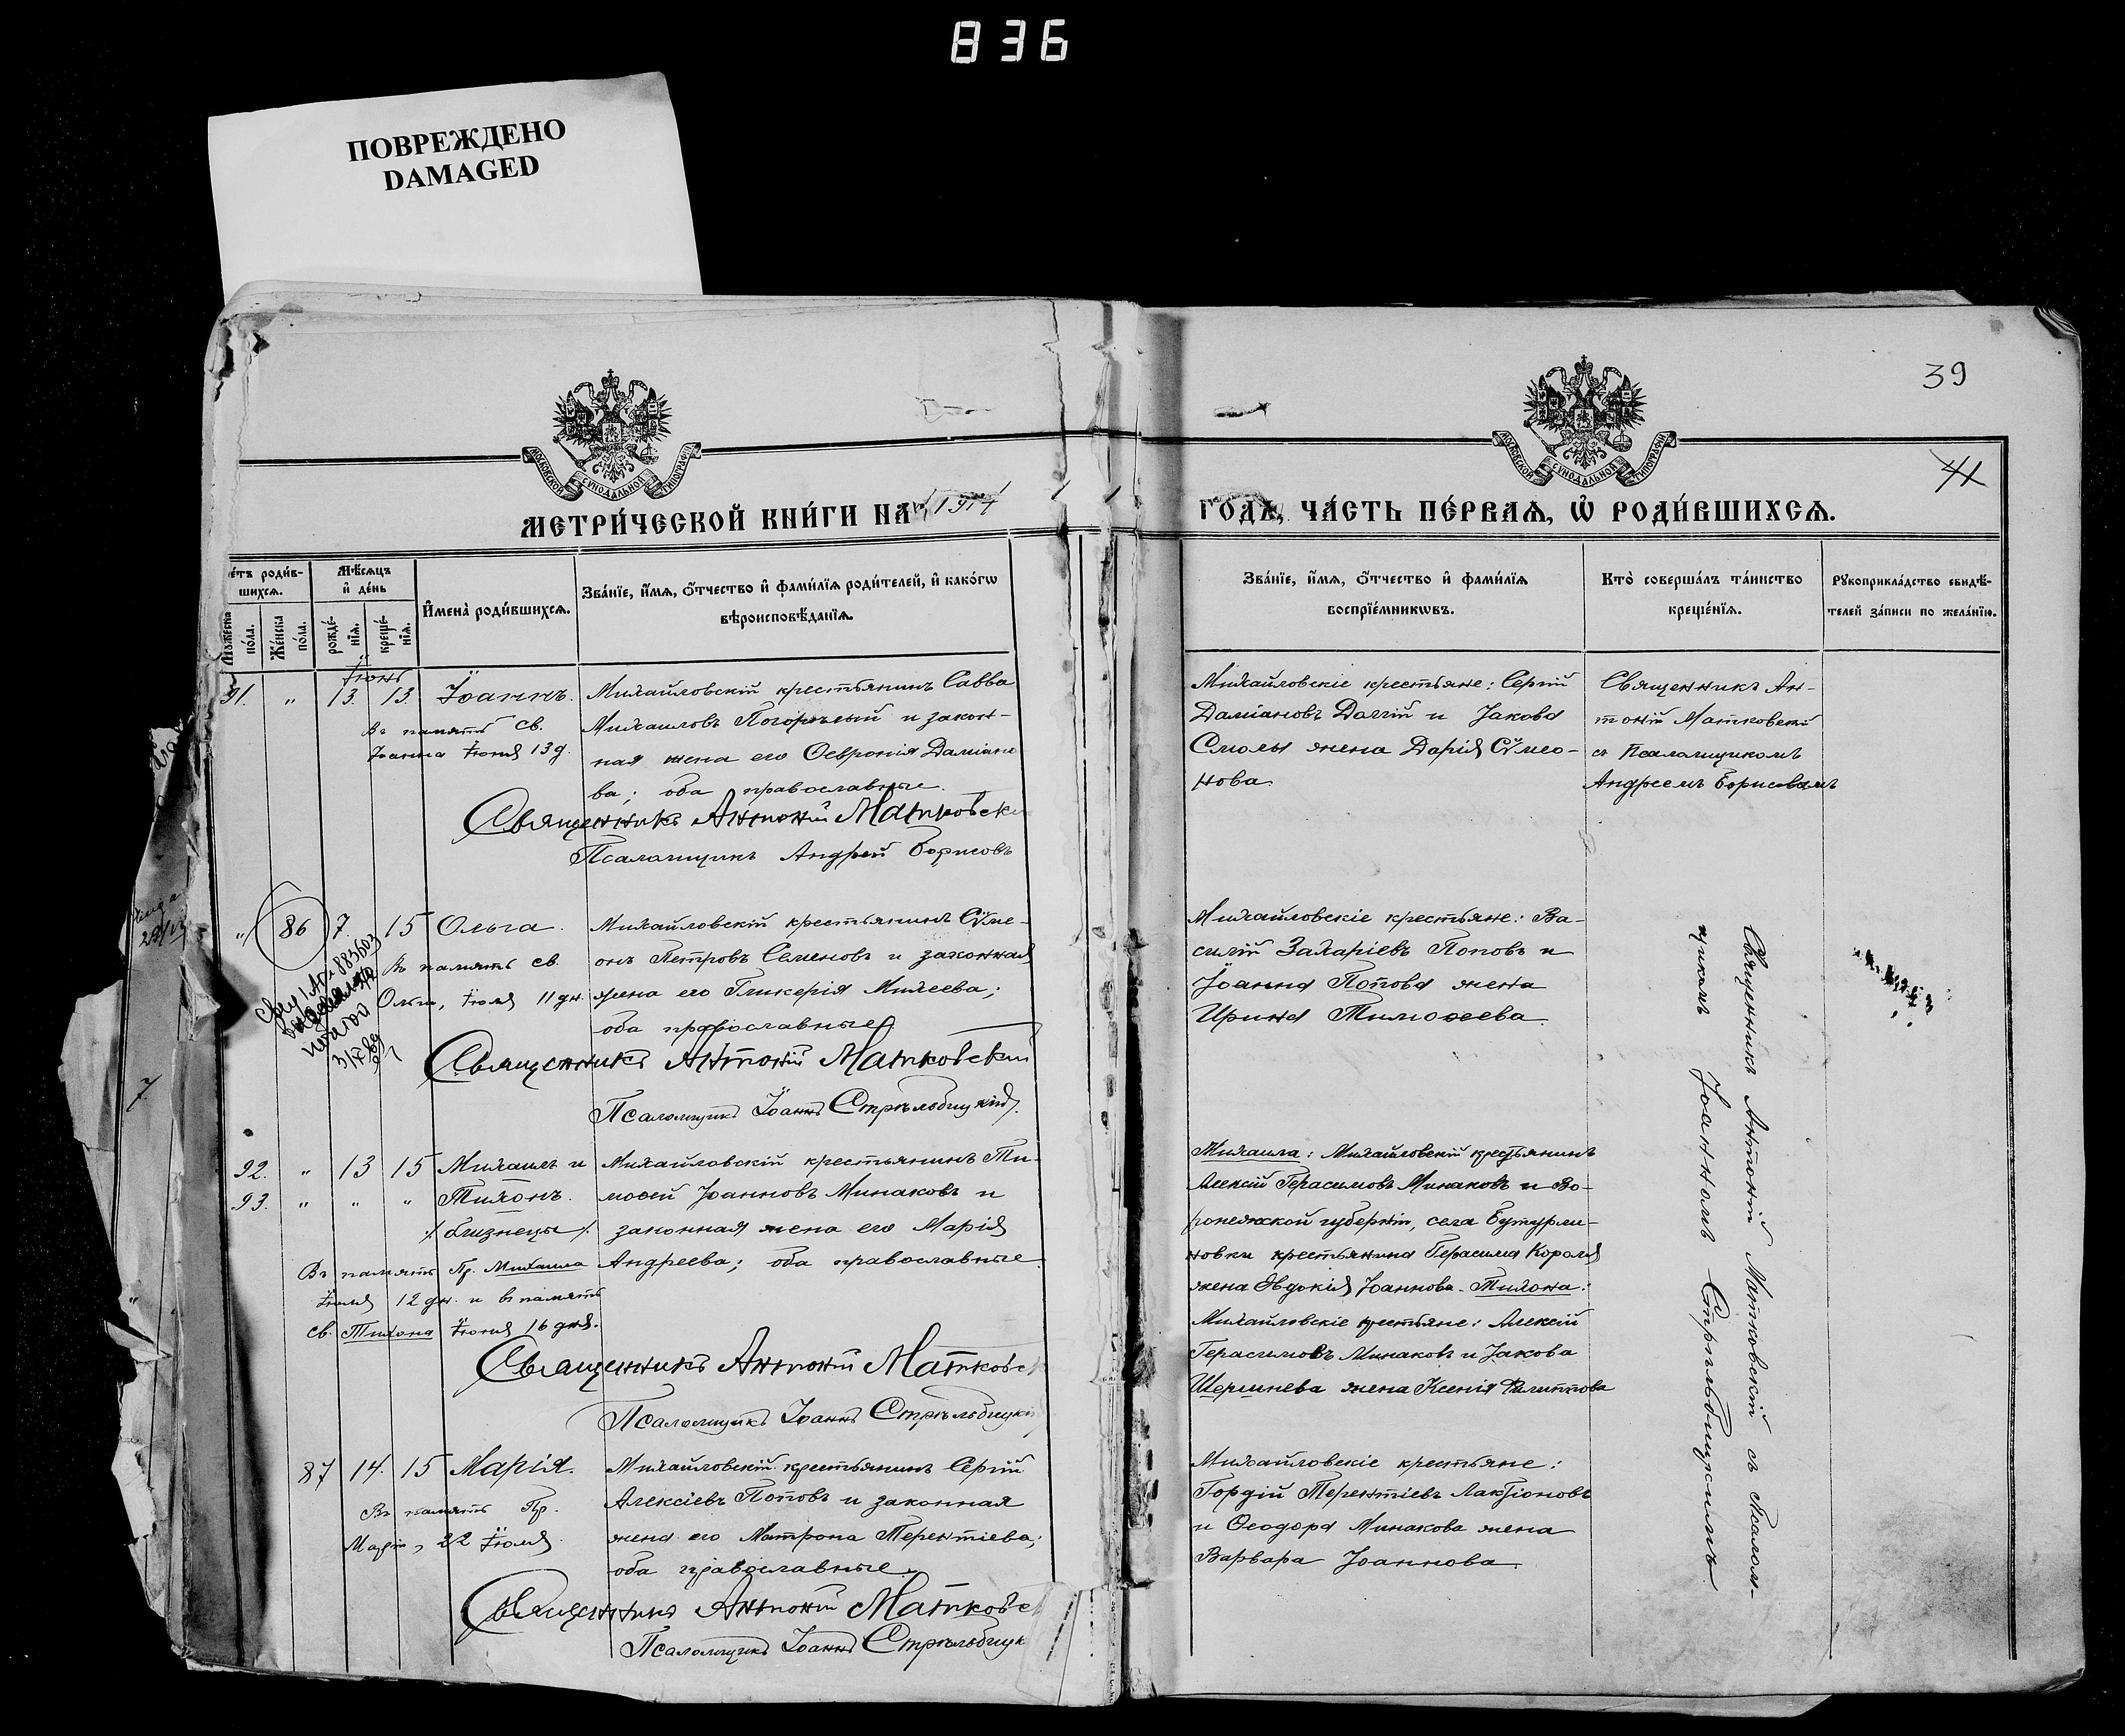 836
ПОВРЕЖДЕНО
DAMAGED
39
41
МОСКОВСКОЙ СѴНОДАЛЬНОЙ ТИПОГРАФІИ
МОСКОВСКОЙ СѴНОДАЛЬНОЙ ТИПОГРАФІИ
МЕТРИ́ЧЕСКОЙ КНИ́ГИ НА 1914
ГОДЪ, ЧА́СТЬ ПЕ́РВАѦ, Ѡ҆ РОДИ́ВШИХСѦ.
е́тъ роди́в-
шихсѧ.
Мѣ́сѧцъ
и҆ де́нь
Мꙋ́жеска по́ла.
Же́нска по́ла.
рожде́-
нїѧ.
креще́-
нїѧ.
И҆мена̀ роди́вшихсѧ.
Зва́нїе, и҆́мѧ, ѻ҆́тчество и҆ фами́лїѧ роди́телей, и҆ како́гѡ
вѣроисповѣ́данїѧ.
Зва́нїе, и҆́мѧ, ѻ҆́тчество и҆ фами́лїѧ
воспрїе́мникѡвъ.
Кто̀ соверша́лъ та́инство
креще́нїѧ.
Рꙋкоприкла́дство свидѣ́-
телей за́писи по жела́нїю.
Іюнь
91. " 13. 13. Іоаннъ.
Въ память св.
Іоанна Іюня 13 д.
Михайловскій крестьянинъ Савва
Михаиловъ Погорѣлый и закон-
ная жена его Ѳевронія Даміано
ва; оба православные.
Священникъ Антоній Матковск
Псаломщикъ Андрей Борисовъ
Михайловскіе крестьяне: Сергій
Даміановъ Долгій и Іакова
Смолы жена Дарія Сѵмео-
нова.
Священникъ Ан-
тоній Матковскій
съ Псаломщикомъ
Андреемъ Борисовымъ
" 86 7. 15 Ольга.
Въ память св.
Ольги, Іюля 11 дн.
Михайловскій крестьянинъ Сѵме-
онъ Петровъ Семеновъ и законная
жена его Гликерія Михеева;
оба православные.
Священникъ Антоній Матковскій
Псаломщикъ Іоаннъ Стрѣльбицкій.
Михайловскіе крестьяне: Ва-
силій Захаріевъ Поповъ и
Іоанна Попова жена
Ирина Тимоѳеева.
Священникъ Антоній Матковскій съ Псалом-
щикомъ Іоанномъ Стрѣльбицкимъ
92. " 13 15 Михаилъ и
93. " " " Тихонъ.
/. близнецы /.
Въ память Пр. Михаила
Іюля 12 дн. и въ память
св. Тихона Іюня 16 дня.
Михайловскій крестьянинъ Ти-
моѳей Іоанновъ Минаковъ и
законная жена его Марія
Андреева; оба православные
Священникъ Антоній Матковс
Псаломщикъ Іоаннъ Стрѣльбицкі
Михаила: Михайловскій крестьянинъ
Алексій Герасимовъ Минаковъ и Во-
ронежской губерніи, села Бутурли-
новки крестьянина Герасима Короля
жена Евдокія Іоаннова. Тихона:
Михайловскіе крестьяне: Алексій
Герасимовъ Минаковъ и Іакова
Шершнева жена Ксенія Филиппова
87 14. 15 Марія.
Въ память Пр.
Маріи, 22 Іюля.
Михайловскій крестьянинъ Сергій
Алексіевъ Поповъ и законная
жена его Матрона Терентіева;
оба православные.
Священникъ Антоній Матковс
Псаломщикъ Іоаннъ Стрѣльбицк
Михайловскіе крестьяне:
Гордій Терентіевъ Лактіоновъ
и Ѳеодора Минакова жена
Варвара Іоаннова.